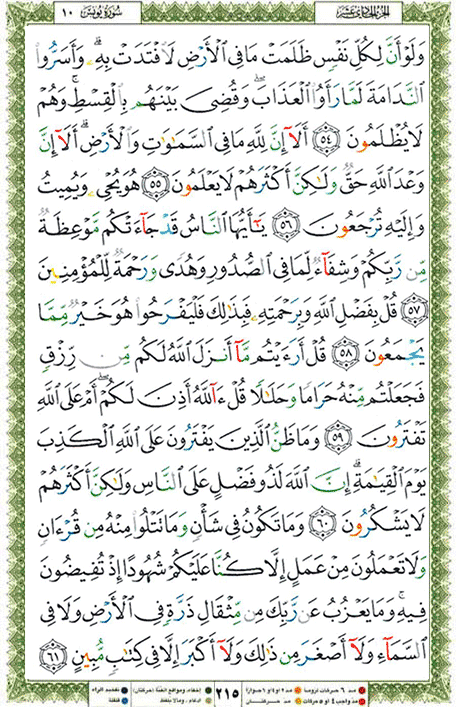 الجزء الحادي عشر سورة يونس ١٠
وَلَوْ أَنَّ لِكُلِّ نَفْسٍ ظَلَمَتْ مَا فِى ٱلْأَرْضِ لَٱفْتَدَتْ بِهِۦ ۗ وَأَسَرُّوا۟
ٱلنَّدَامَةَ لَمَّا رَأَوُا۟ ٱلْعَذَابَ ۖ وَقُضِىَ بَيْنَهُم بِٱلْقِسْطِ ۚ وَهُمْ
لَا يُظْلَمُونَ ٥٤ أَلَآ إِنَّ لِلَّهِ مَا فِى ٱلسَّمَـٰوَٰتِ وَٱلْأَرْضِ ۗ أَلَآ إِنَّ
وَعْدَ ٱللَّهِ حَقٌّ وَلَـٰكِنَّ أَكْثَرَهُمْ لَا يَعْلَمُونَ ٥٥ هُوَ يُحْىِۦ وَيُمِيتُ
وَإِلَيْهِ تُرْجَعُونَ ٥٦ يَـٰٓأَيُّهَا ٱلنَّاسُ قَدْ جَآءَتْكُم مَّوْعِظَةٌ
مِّن رَّبِّكُمْ وَشِفَآءٌ لِّمَا فِى ٱلصُّدُورِ وَهُدًى وَرَحْمَةٌ لِّلْمُؤْمِنِينَ
٥٧ قُلْ بِفَضْلِ ٱللَّهِ وَبِرَحْمَتِهِۦ فَبِذَٰلِكَ فَلْيَفْرَحُوا۟ هُوَ خَيْرٌ مِّمَّا
يَجْمَعُونَ ٥٨ قُلْ أَرَءَيْتُم مَّآ أَنزَلَ ٱللَّهُ لَكُم مِّن رِّزْقٍ
فَجَعَلْتُم مِّنْهُ حَرَامًا وَحَلَـٰلًا قُلْ ءَآللَّهُ أَذِنَ لَكُمْ ۖ أَمْ عَلَى ٱللَّهِ
تَفْتَرُونَ ٥٩ وَمَا ظَنُّ ٱلَّذِينَ يَفْتَرُونَ عَلَى ٱللَّهِ ٱلْكَذِبَ
يَوْمَ ٱلْقِيَـٰمَةِ ۗ إِنَّ ٱللَّهَ لَذُو فَضْلٍ عَلَى ٱلنَّاسِ وَلَـٰكِنَّ أَكْثَرَهُمْ
لَا يَشْكُرُونَ ٦٠ وَمَا تَكُونُ فِى شَأْنٍ وَمَا تَتْلُوا۟ مِنْهُ مِن قُرْءَانٍ
وَلَا تَعْمَلُونَ مِنْ عَمَلٍ إِلَّا كُنَّا عَلَيْكُمْ شُهُودًا إِذْ تُفِيضُونَ
فِيهِ ۚ وَمَا يَعْزُبُ عَن رَّبِّكَ مِن مِّثْقَالِ ذَرَّةٍ فِى ٱلْأَرْضِ وَلَا فِى
ٱلسَّمَآءِ وَلَآ أَصْغَرَ مِن ذَٰلِكَ وَلَآ أَكْبَرَ إِلَّا فِى كِتَـٰبٍ مُّبِينٍ ٦١
مد ٦ حركات لزوماً مد ٢ او ٤ او ٦ جوازاً ٢١٥ إخفاء، ومواقع الغنة (حركتان) تفخيم الراء
مد واجب ٤ او ٥ حركات مد حركتان إدغام، وما لا يلفظ قلقلة